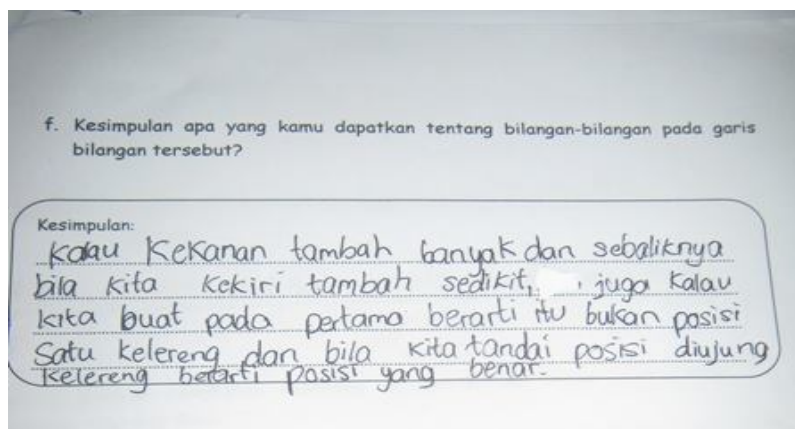 f. Kesimpulan apa yang kamu dapatkan tentang bilangan-bilangan pada garis
bilangan tersebut?
Kesimpulan:
Kalau Kekanan tambah banyak dan sebaliknya
bila kita kekiri tambah sedikit, , juga kalau
kita buat pada pertama berarti itu bukan posisi
Satu kelereng dan bila kita tandai posisi diujung
kelereng berarti posisi yang benar.